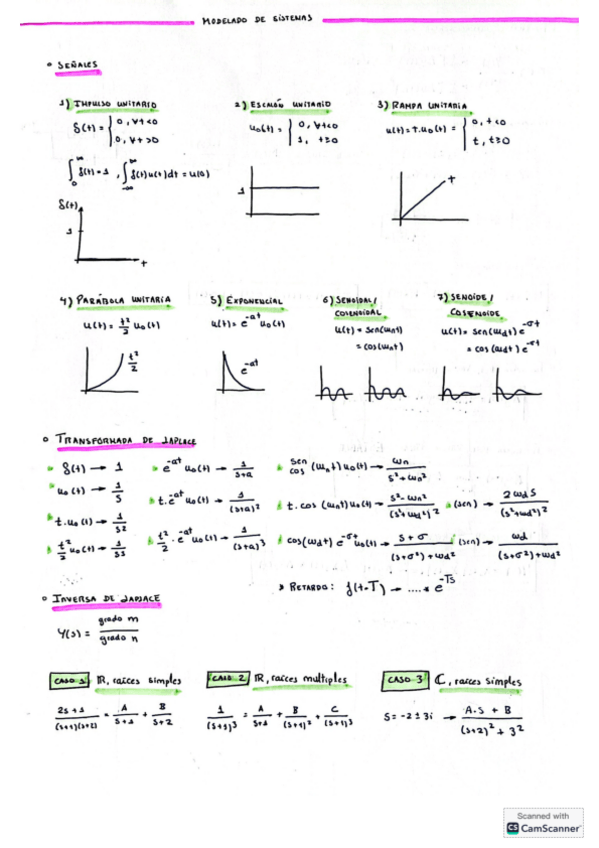 MODELADO DE SISTEMAS
° SEÑALES
1) IMPULSO UNITARIO
δ(t) = { 0, ∀t<0
0, ∀t>0
∫₀^∞ δ(t)=1, ∫₋∞^∞ δ(t)u(t)dt = u(0)
δ(t)
1
t
2) ESCALÓN UNITARIO
u₀(t) = { 0, ∀t<0
1, t≥0
1
3) RAMPA UNITARIA
u(t)=t.u₀(t) = { 0, t<0
t, t≥0
t
4) PARÁBOLA UNITARIA
u(t)= t²/2 u₀(t)
t²/2
5) EXPONENCIAL
u(t)= e^-at u₀(t)
e^-at
6) SENOIDAL/
COSENOIDAL
u(t) = sen(ωnt)
= cos(ωnt)
7) SENOIDE/
COSENOIDE
u(t)= sen(ωdt) e^-σt
= cos(ωdt) e^-σt
° TRANSFORMADA DE LAPLACE
δ(t) → 1
u₀(t) → 1/s
t.u₀(t) → 1/s²
t²/2 u₀(t) → 1/s³
e^-at u₀(t) → 1/(s+a)
t.e^-at u₀(t) → 1/(s+a)²
t²/2 . e^-at u₀(t) → 1/(s+a)³
sen
cos (ωnt)u₀(t) → ωn/(s²+ωn²)
t.cos(ωnt)u₀(t) → (s²-ωn²)/(s²+ωd²)² (sen) → 2ωdS/(s²+ωd²)²
cos(ωdt) e^-σt u₀(t) → (s+σ)/((s+σ²)+ωd²) (sen) → ωd/((s+σ²)+ωd²)
» RETARDO: f(t-T) → .... * e^-Ts
° INVERSA DE LAPLACE
Y(s) = grado m / grado n
CASO 1 ℝ, raíces simples
(2s+1)/((s+1)(s+2)) = A/(s+1) + B/(s+2)
CASO 2 ℝ, raíces multiples
1/(s+1)³ = A/(s+1) + B/(s+1)² + C/(s+1)³
CASO 3 ℂ, raíces simples
S=-2±3i → (A.s + B)/((s+2)² + 3²)
Scanned with
CS CamScanner